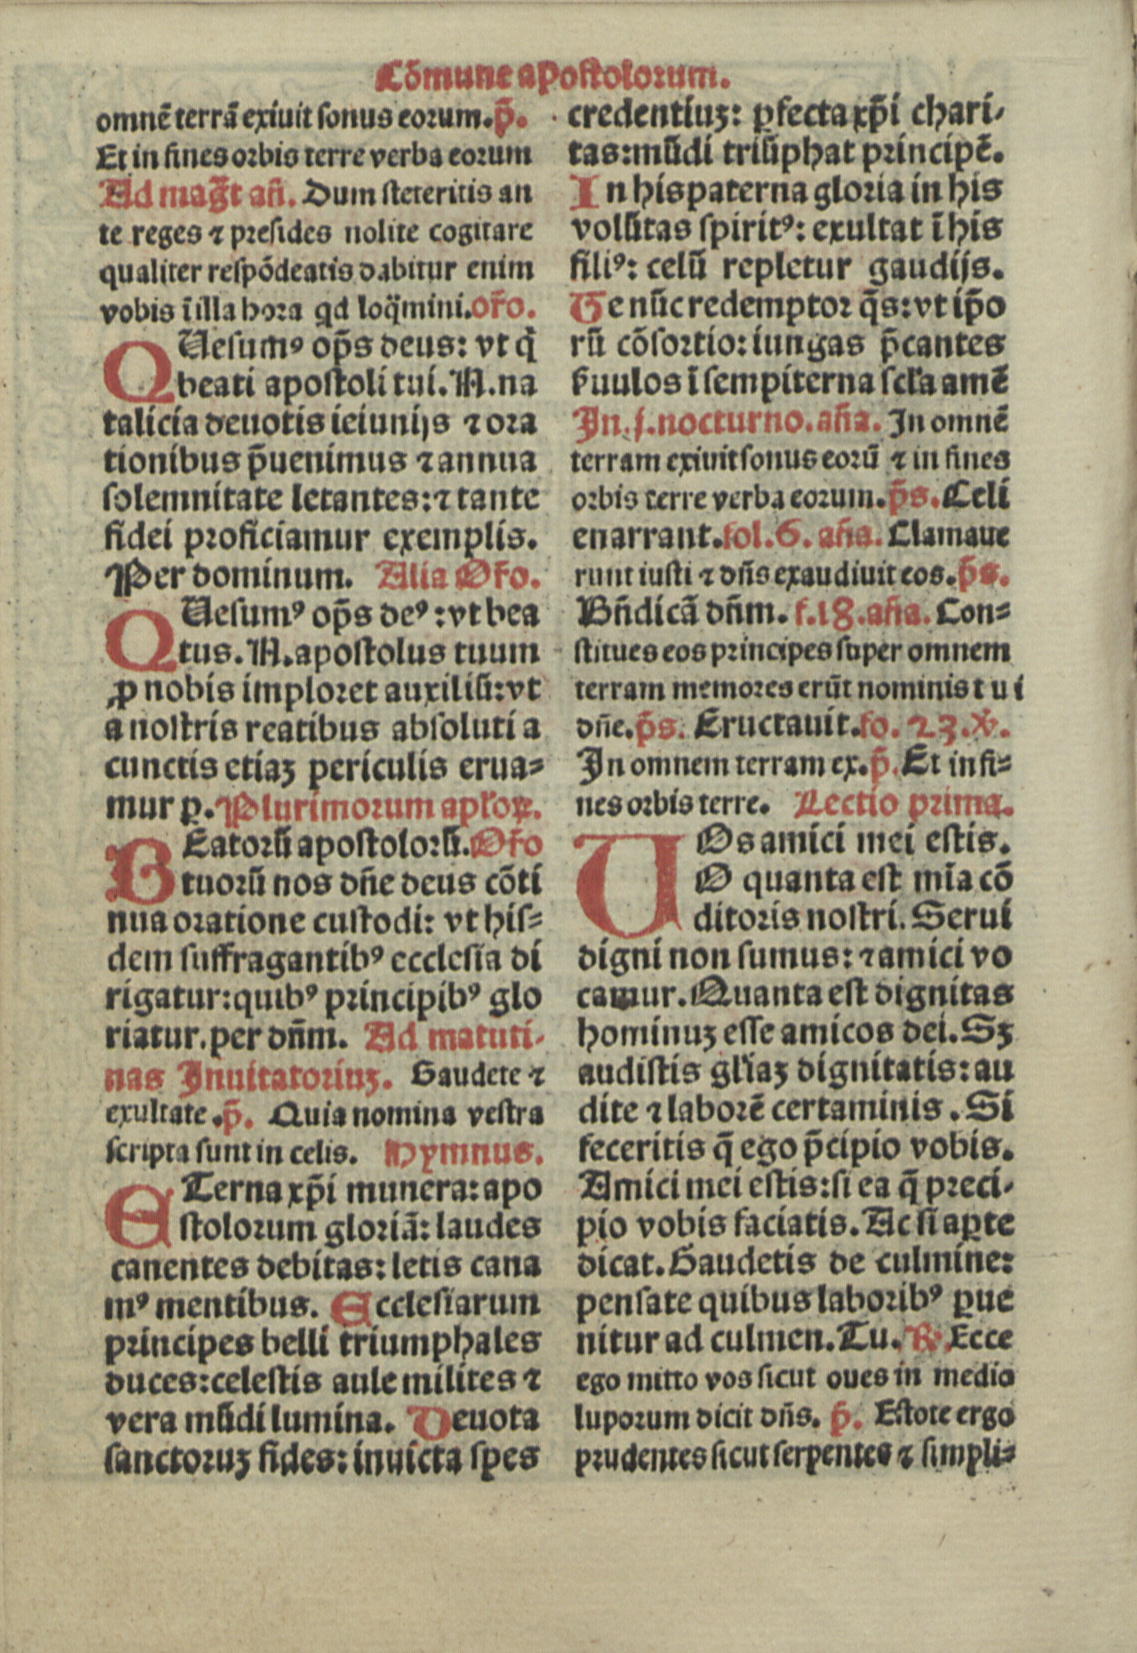 Cōmune apostolorum.
omnē terrā exiuit sonus eorum. p̄.
Et in fines orbis terre verba eorum
Ad mag̃t añ. Dum steteritis an
te reges ⁊ presides nolite cogitare
qualiter respōdeatis dabitur enim
vobis ī illa hora qd loq̄mini. or̃o.
QUesumꝰ op̄s deus: vt q̄
beati apostoli tui. N. na
talicia deuotis ieiunijs ⁊ ora
tionibus p̄uenimus ⁊ annua
solemnitate letantes: ⁊ tante
fidei proficiamur exemplis.
Per dominum. Alia Or̃o.
QUesumꝰ op̄s deꝰ: vt bea
tus. N. apostolus tuum
ꝓ nobis imploret auxiliū: vt
a nostris reatibus absoluti a
cunctis etiaꝫ periculis erua⸗
mur ꝑ. Plurimorum apl'oꝝ.
BEatorū apostolorū. Or̃o
tuorū nos dñe deus cōti
nua oratione custodi: vt hiſ⸗
dem suffragantibꝰ ecclesia di
rigatur: quibꝰ principibꝰ glo
riatur. per dñm. Ad matuti⸗
nas Inuitatoriuꝫ. Gaudete ⁊
exultate. p̄. Quia nomina vestra
scripta sunt in celis. Hymnus.
ETerna xp̄i munera: apo
stolorum gloriā: laudes
canentes debitas: letis cana
mꝰ mentibus. Ecclesiarum
principes belli triumphales
duces: celestis aule milites ⁊
vera mūdi lumina. Deuota
sanctoruꝫ fides: inuicta spes
credentiuꝫ: ꝑfecta xp̄i chari⸗
tas: mūdi triūphat principē.
In his paterna gloria in his
volūtas spiritꝰ: exultat ī his
filiꝰ: celū repletur gaudijs.
Te nūc redemptor q̄s: vt ip̄o
rū cōsortio: iungas p̄cantes
ẜuulos ī sempiterna scl'a amē
In. j. nocturno. añа. In omnē
terram exiuit sonus eorū ⁊ in fines
orbis terre verba eorum. p̄s. Celi
enarrant. fol. 6. aña. Clamaue
runt iusti ⁊ dñs exaudiuit eos. p̄s.
Bñdicā dñm. f. 18. aña. Con⸗
stitues eos principes super omnem
terram memores erūt nominis tui
dñe. p̄s. Eructauit. fo. 23. ℣.
In omnem terram ex. p̄. Et in fi⸗
nes orbis terre. Lectio prima.
UOs amici mei estis.
O quanta est mīa cō
ditoris nostri. Serui
digni non sumus: ⁊ amici vo
camur. Quanta est dignitas
hominuꝫ esse amicos dei. Sꝫ
audistis gl'iaꝫ dignitatis: au
dite ⁊ laborē certaminis. Si
feceritis q̄ ego p̄cipio vobis.
Amici mei estis: si ea q̄ preci⸗
pio vobis faciatis. Ac si aꝑte
dicat. Gaudetis de culmine:
pensate quibus laboribꝰ ꝑue
nitur ad culmen. Tu. ℟. Ecce
ego mitto vos sicut oues in medio
luporum dicit dñs. p̄. Estote ergo
prudentes sicut serpentes ⁊ simpli⸗